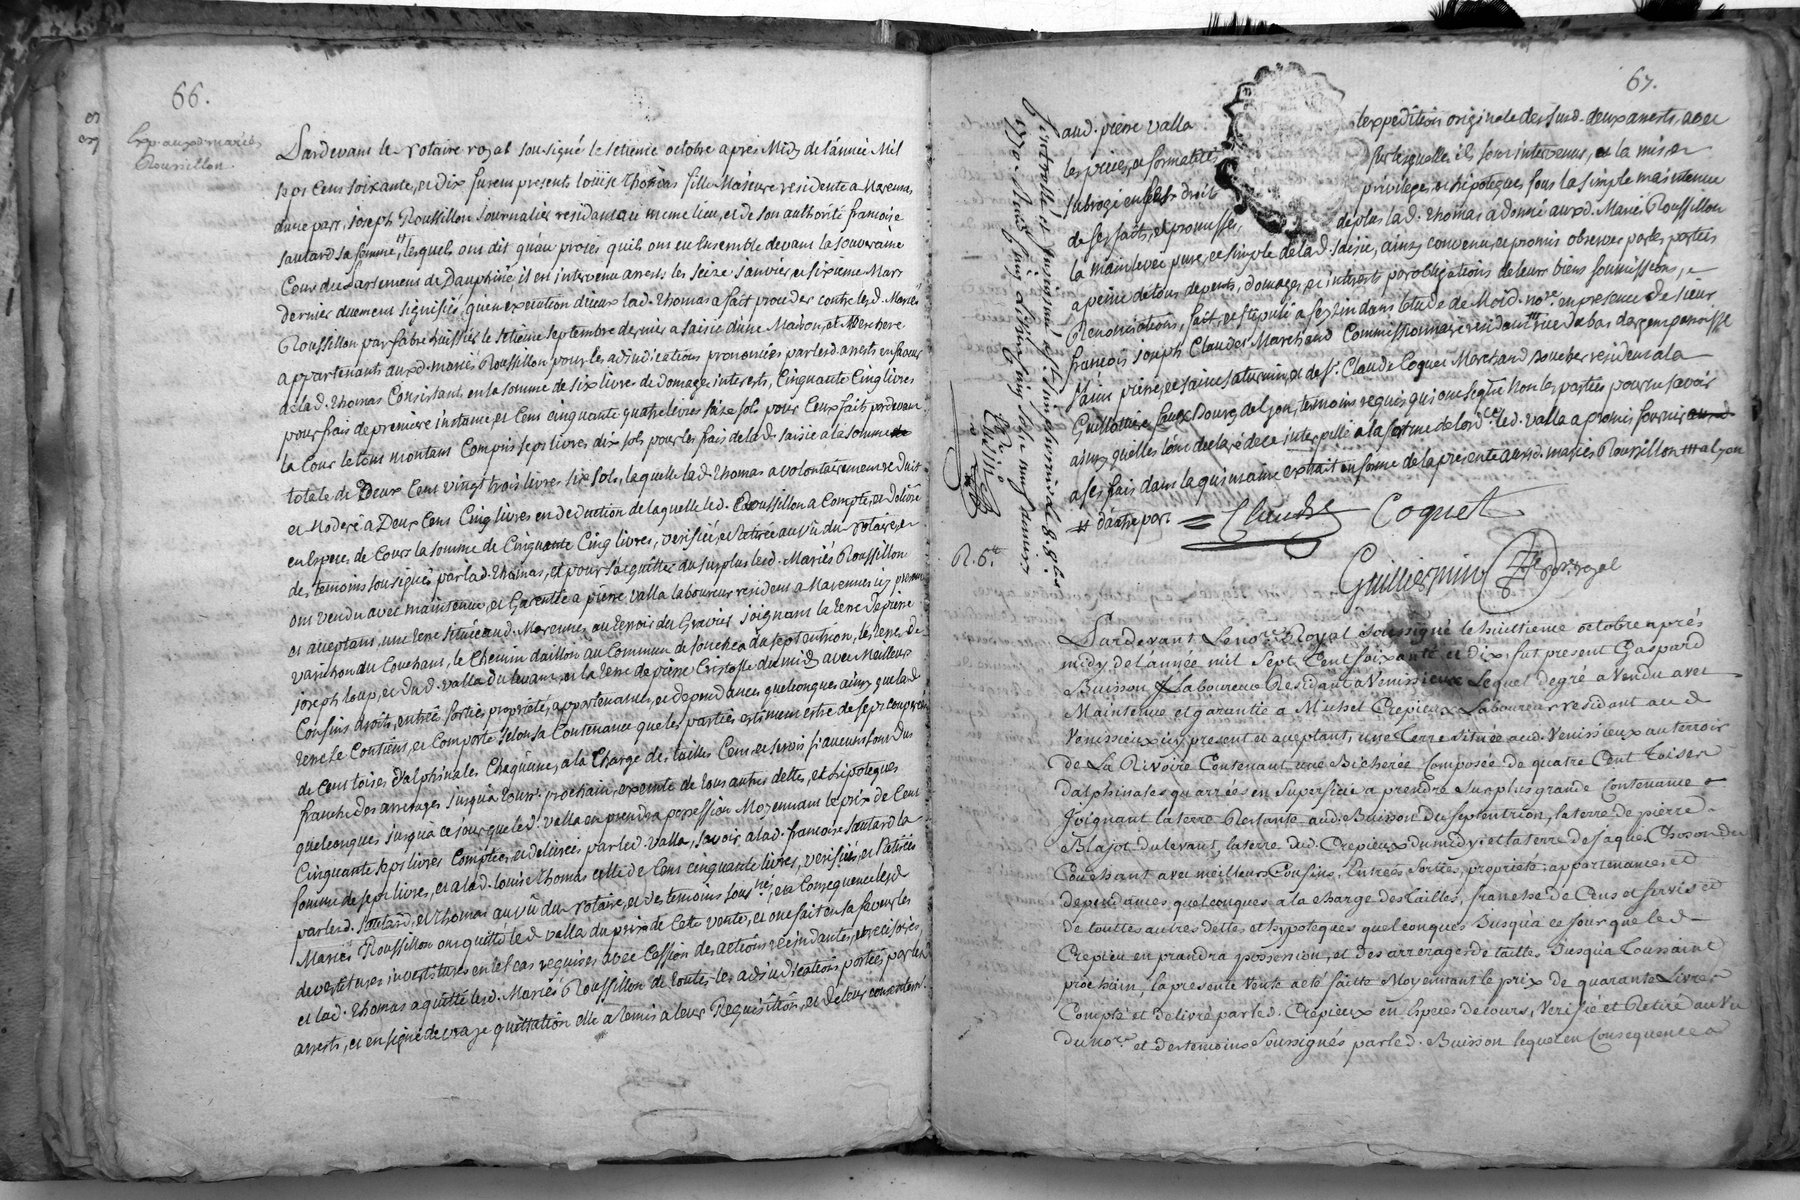 66.
Exp. aux d. mariés
Roussillon.
Pardevant le Notaire royal soussigné le setieme octobre apres Midy de l'année Mil
sept Cens soixante, et dix furent presents louise Thomas fille Majeure residente a Marennes
dune part, joseph Roussillon Journalier residant au meme lieu, et de son authorité francoise
sautard sa femme, lesquels ont dit qu'au procés quils ont eu Ensemble devant la souveraine
Cour du Parlement de Dauphiné, il est intervenu arrests les seize janvier, et sixieme Mars
dernier duement signifiés, qu'en execution d'iceux lad. Thomas a fait proceder contre lesd. Mariés
Roussillon par fabre huissier le setieme septembre dernier a saisie d'une Maison, et Verchere
appartenants auxd. mariés Roussillon pour les adjudications prononcées par lesd. arrests en faveur
de lad. Thomas Consistant en la somme de six livres de domages interests, Cinquante Cinq livres
pour frais de premiere instance et Cent cinquante quatre livres seize sols pour Ceux faits pardevant
la Cour le tout montant Compris sept livres dix sols pour les frais de lad. saisie a la somme
totale de Deux Cent vingt trois livres six sols, laquelle lad. Thomas a volontairement reduit
et Moderé a Deux Cens Cinq livres en deduction de laquelle led. Roussillon a Compté, et delivré
en Especes de Cours la somme de Cinquante Cinq livres, verifiée, et retirée au vû du Notaire, et
des temoins soussignés par lad. Thomas, et pour s'acquitter du surplus lesd. Mariés Roussillon
ont vendu avec maintenue, et Garentie a pierre valla laboureur residant a Marennes icy present
et acceptant, une terre située aud. Marennes au terroir du Gravier joignant la terre de pierre
vainchon du Couchant, le Chemin d'aillon au Commun de souchea du septentrion, les terres de
joseph loup, et dud. valla du levant, et la terre de pierre Cristofle du midy avec Meilleurs
Confins droits, entrées sorties proprietés, appartenances, et dependances quelconques ainsy que lad.
terre se Contient, et Comporte selon sa Contenance que les parties estiment estre de sept couperées
de Cent toises Dalphinales Chaqune, a la Charge des tailles Cens et servis si aucuns sont dus
franche des arrerages jusqu'a touss.ts prochain, exempte de tous autres dettes, et hipoteques
quelconques jusqu'a ce jour que led. valla en prendra possession Moyennant le prix de Cent
Cinquante sept livres Comptées, et delivrées par led. valla, savoir a lad. francoise sautard la
somme de sept livres, et a lad. louise Thomas celle de Cent cinquante livres, verifiées, et retirées
par lesd. sautard, et Thomas au vû du Notaire, et des temoins soussignés, en Consequence lesd.
Mariés Roussillon ont quitté led. valla du prix de Cete vente, et ont fait en sa faveur les
devestitures investitures en tel cas requises avec Cession des actions rescindantes, et rescisoires,
et lad. Thomas a quitté lesd. Mariés Roussillon de toutes les adjudications portées par lesd.
arrests, et en signe de vraye quittation elle a remis a leur Requisition, et de leur consentem.t
67.
aud. pierre valla l'expedition originale des susd. deux arrests, avec
les pieces, et formalités sur lesquelles ils sont intervenus, et la mis et
subrogé en ses droits privileges, et hipoteques sous la simple maintenue
de ses faits, et promesses, de plus lad. Thomas a donné auxd. Mariés Roussillon
la mainlevée pure, et simple de lad. saisie, ainsy convenu, et promis observer par les parties
a peine de tous depents, domages, et interests par obligations de leurs biens soumissions, et
Renonciations, fait, et stipulé a feyzin dans l'Etude de Moid. no.re en presence de sieur
francois joseph Claudes Marchand Commissionnaire residant rue du bas dargent paroisse
Saint pierre, et saint saturnin, et de s.r Claude Coquet Marchand boucher resident a la
Guillotiere faux bourg de lyon, temoins requis qui ont signé Non les parties pour ne savoir
ainsy quelles lont declaré de ce interpellé a la forme de lord.ce led. valla a promis fournir
a ses frais dans la quinzaine extrait en forme de la presente auxd. mariés Roussillon a lyon
d'autre part. Claudes Coquet
Guilliermin no.re royal
R. 6.te
Pardevant Le no.re Royal soussigné le huittieme octobre aprés
midy de l'année mil Sept Cent soixante et dix, fut present Gaspard
Buisson Laboureur Residant a Venissieux Lequel degré a Vendu avec
Maintenue et garantie a Michel Crepieux Laboureur residant aud.
Venissieux icy present et acceptant, une Terre située aud. Venissieux au terroir
de La Rivoire Contenant une Bicherée Composée de quatre Cent Toises
dalphinales quarrées en Superficie a prendre Sur plus grande Contenance et
Joignant la terre Restante aud. Buisson du septentrion, la terre de pierre
Blajot du levant, la terre dud. Crepieux du midy, et la terre de Jaque Choson du
Couchant avec meilleurs Confins, Entrées Sorties, proprieté, appartenances, et
dependances quelconques a la charge des Tailles, franche de Cens et servis et
de touttes autres dettes et hypoteques quelconques Jusqu'a ce jour que led.
Crepieu en praindra possession, et des arrerages de tailles Jusqu'a Toussaint
prochain, la presente Vente a eté faitte Moyennant le prix de quarante Livres
Compté et delivré par led. Crepieux en Especes de Cours, Verifié et Retiré au Vu
du no.re et des temoins soussignés par led. Buisson lequel en Consequence a